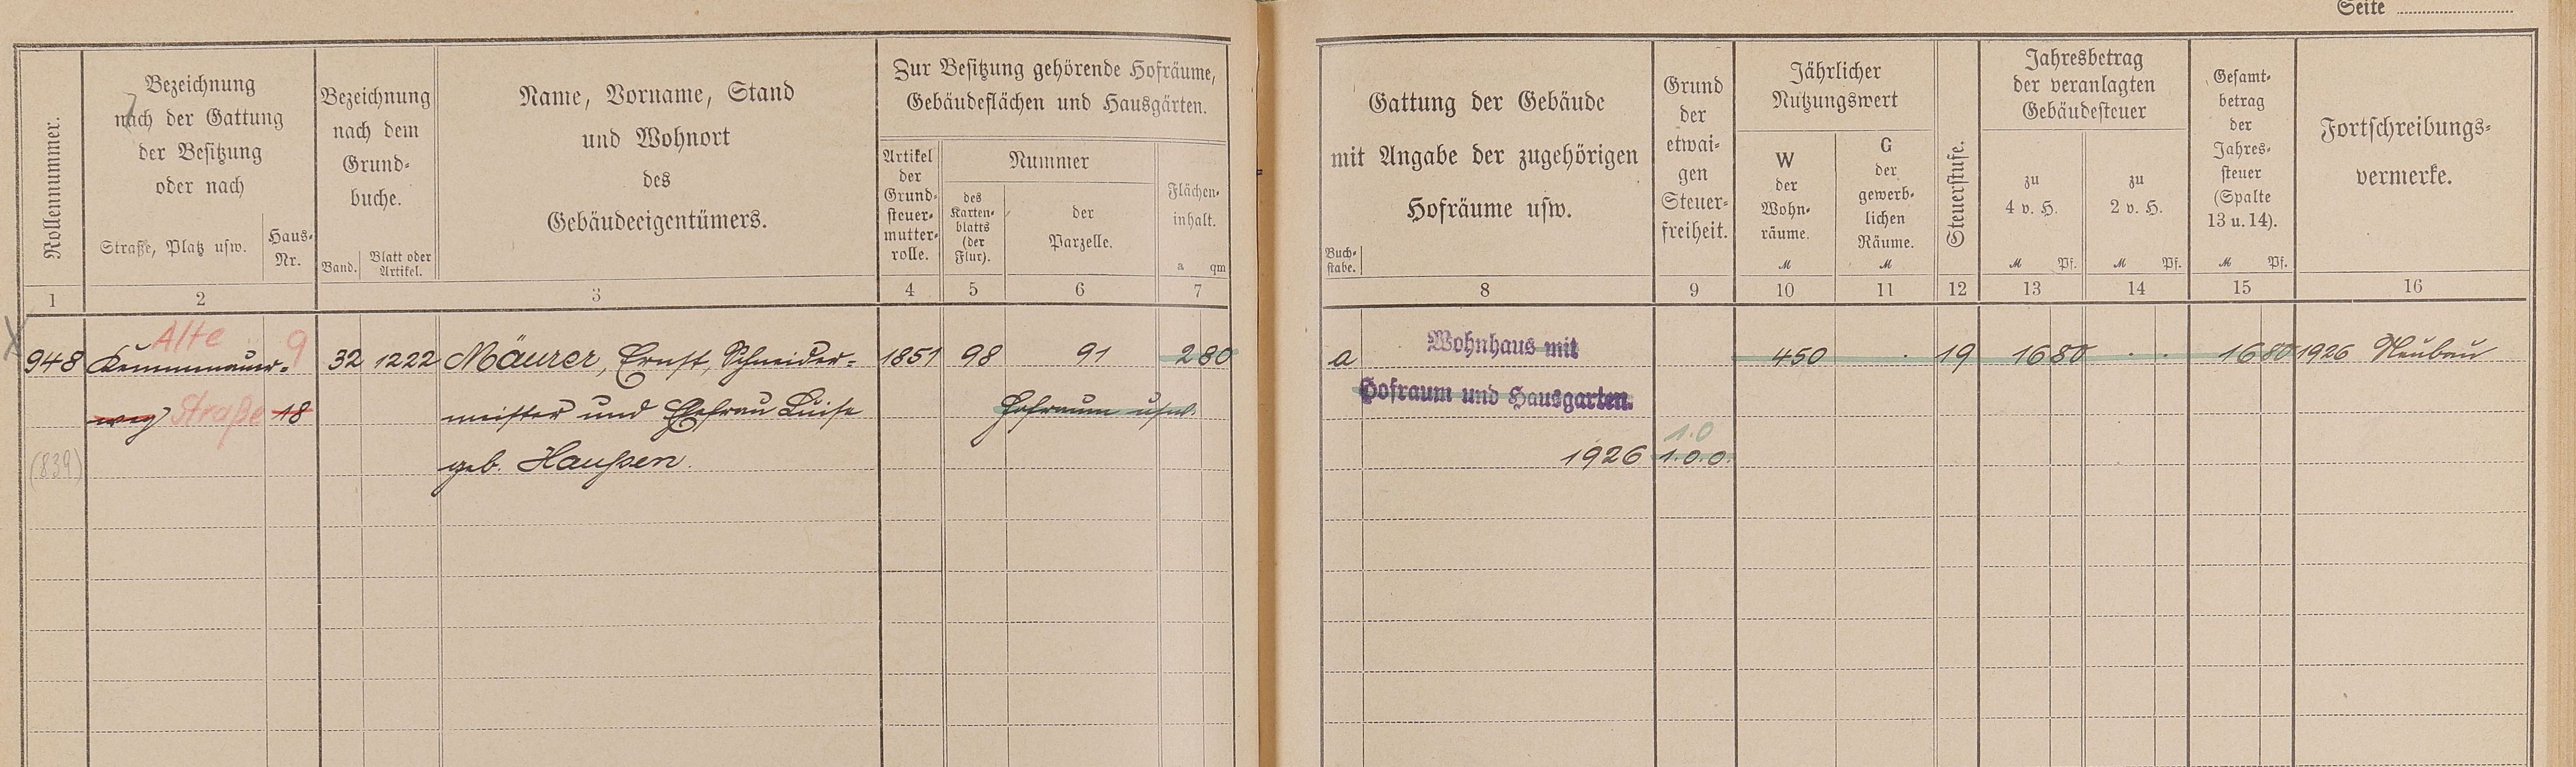 Seite
Rollennummer.
Bezeichnung
nach der Gattung
der Besitzung
oder nach
Straße, Platz usw.
Haus-
Nr.
Bezeichnung
nach dem
Grund-
buche.
Band.
Blatt oder
Artikel.
Name, Vorname, Stand
und Wohnort
des
Gebäudeeigentümers.
Zur Besitzung gehörende Hofräume,
Gebäudeflächen und Hausgärten.
Artikel
der
Grund-
steuer-
mutter-
rolle.
Nummer
des
Karten-
blatts
(der
Flur).
der
Parzelle.
Flächen-
inhalt.
a qm
Gattung der Gebäude
mit Angabe der zugehörigen
Hofräume usw.
Buch-
stabe.
Grund
der
etwai-
gen
Steuer-
freiheit.
Jährlicher
Nutzungswert
W
der
Wohn-
räume.
M
G
der
gewerb-
lichen
Räume.
M
Steuerstufe.
Jahresbetrag
der veranlagten
Gebäudesteuer
zu
4 v. H.
M Pf.
zu
2 v. H.
M Pf.
Gesamt-
betrag
der
Jahres-
steuer
(Spalte
13 u. 14).
M Pf.
Fortschreibungs-
vermerke.
1 2 3 4 5 6 7 8 9 10 11 12 13 14 15 16
Alte 9
948 32 1222 Mäurer, Ernst, Schneider= 1851 98 91 2 80 a Wohnhaus mit 450 . 19 16 80 . . 16 80 1926 Neubau
weg Straße 18 meister und Ehefrau Luise Hofraum usw. Hofraum und Hausgarten.
(839) geb. Haußen. 1926 1.0.0.
1.0